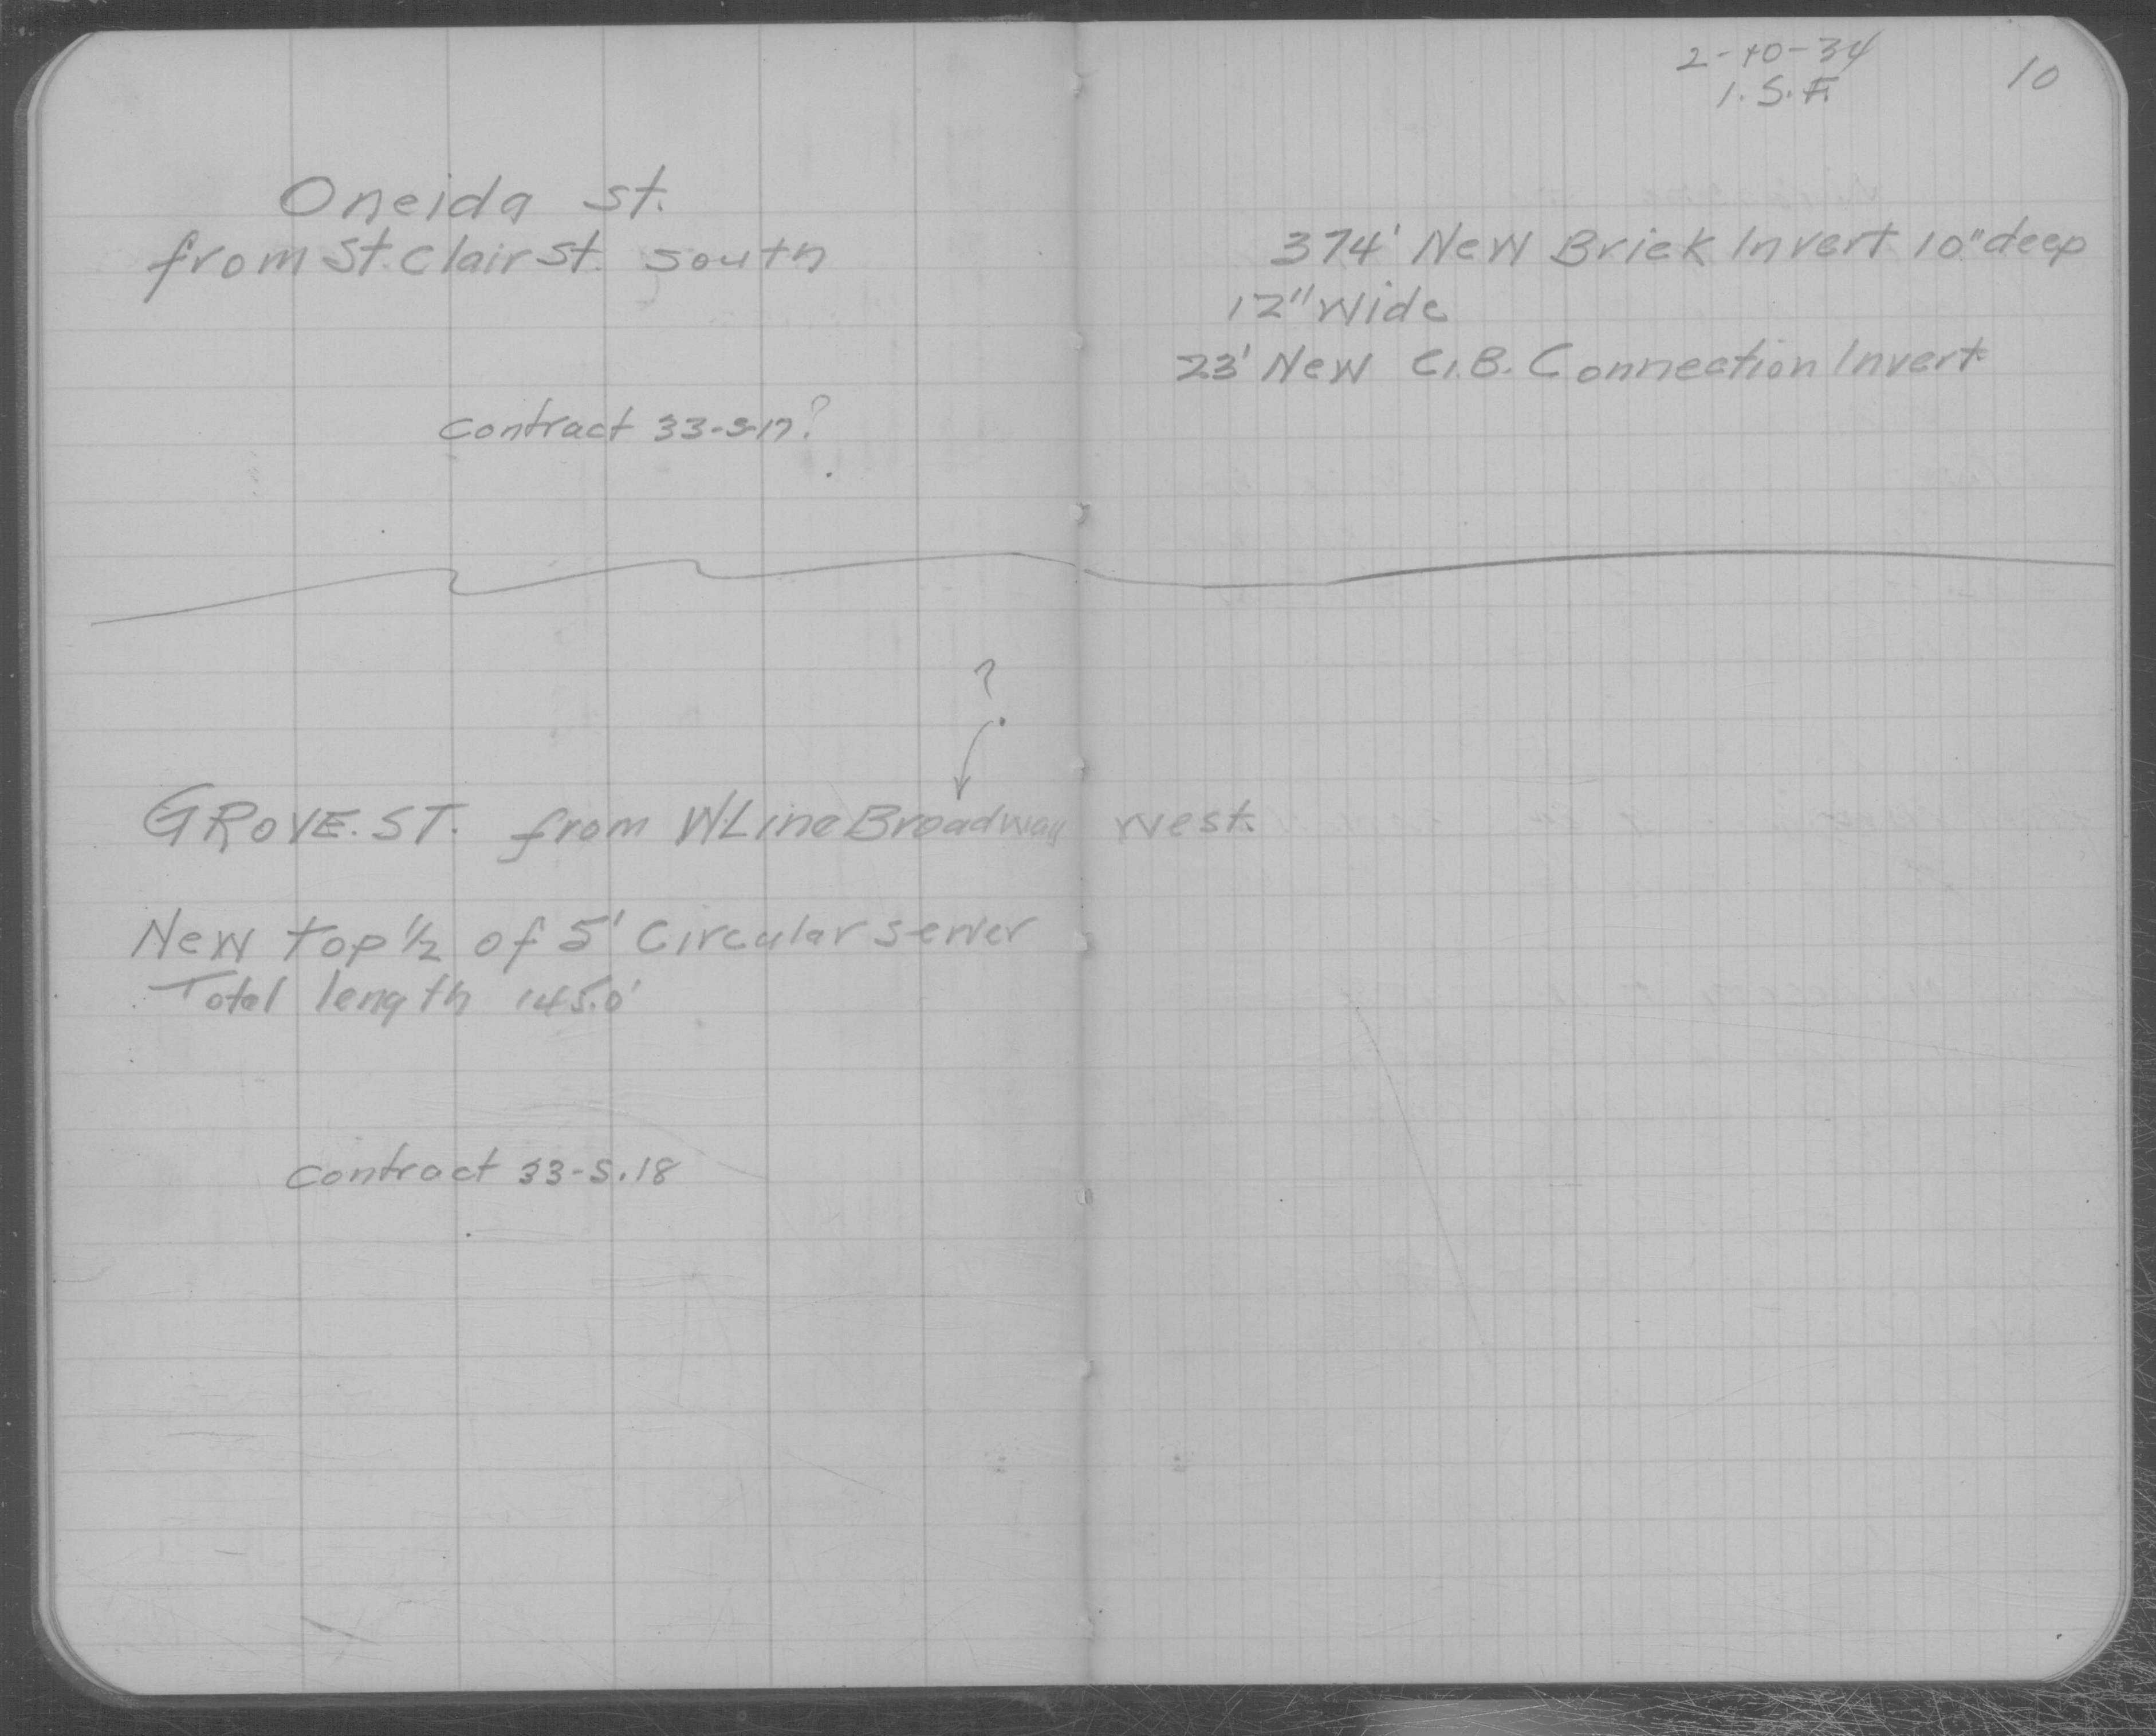 2-10-34
10
I.S.F.
Oneida St.
from St. Clair St. South
374' New Brick Invert 10" deep
12" Wide
23' New C.B. Connection Invert
Contract 33-S-17?
?
GROVE. ST. from W Line Broadway West
New top 1/2 of 5' Circular sewer
Total length 145.0'
Contract 33-S.18